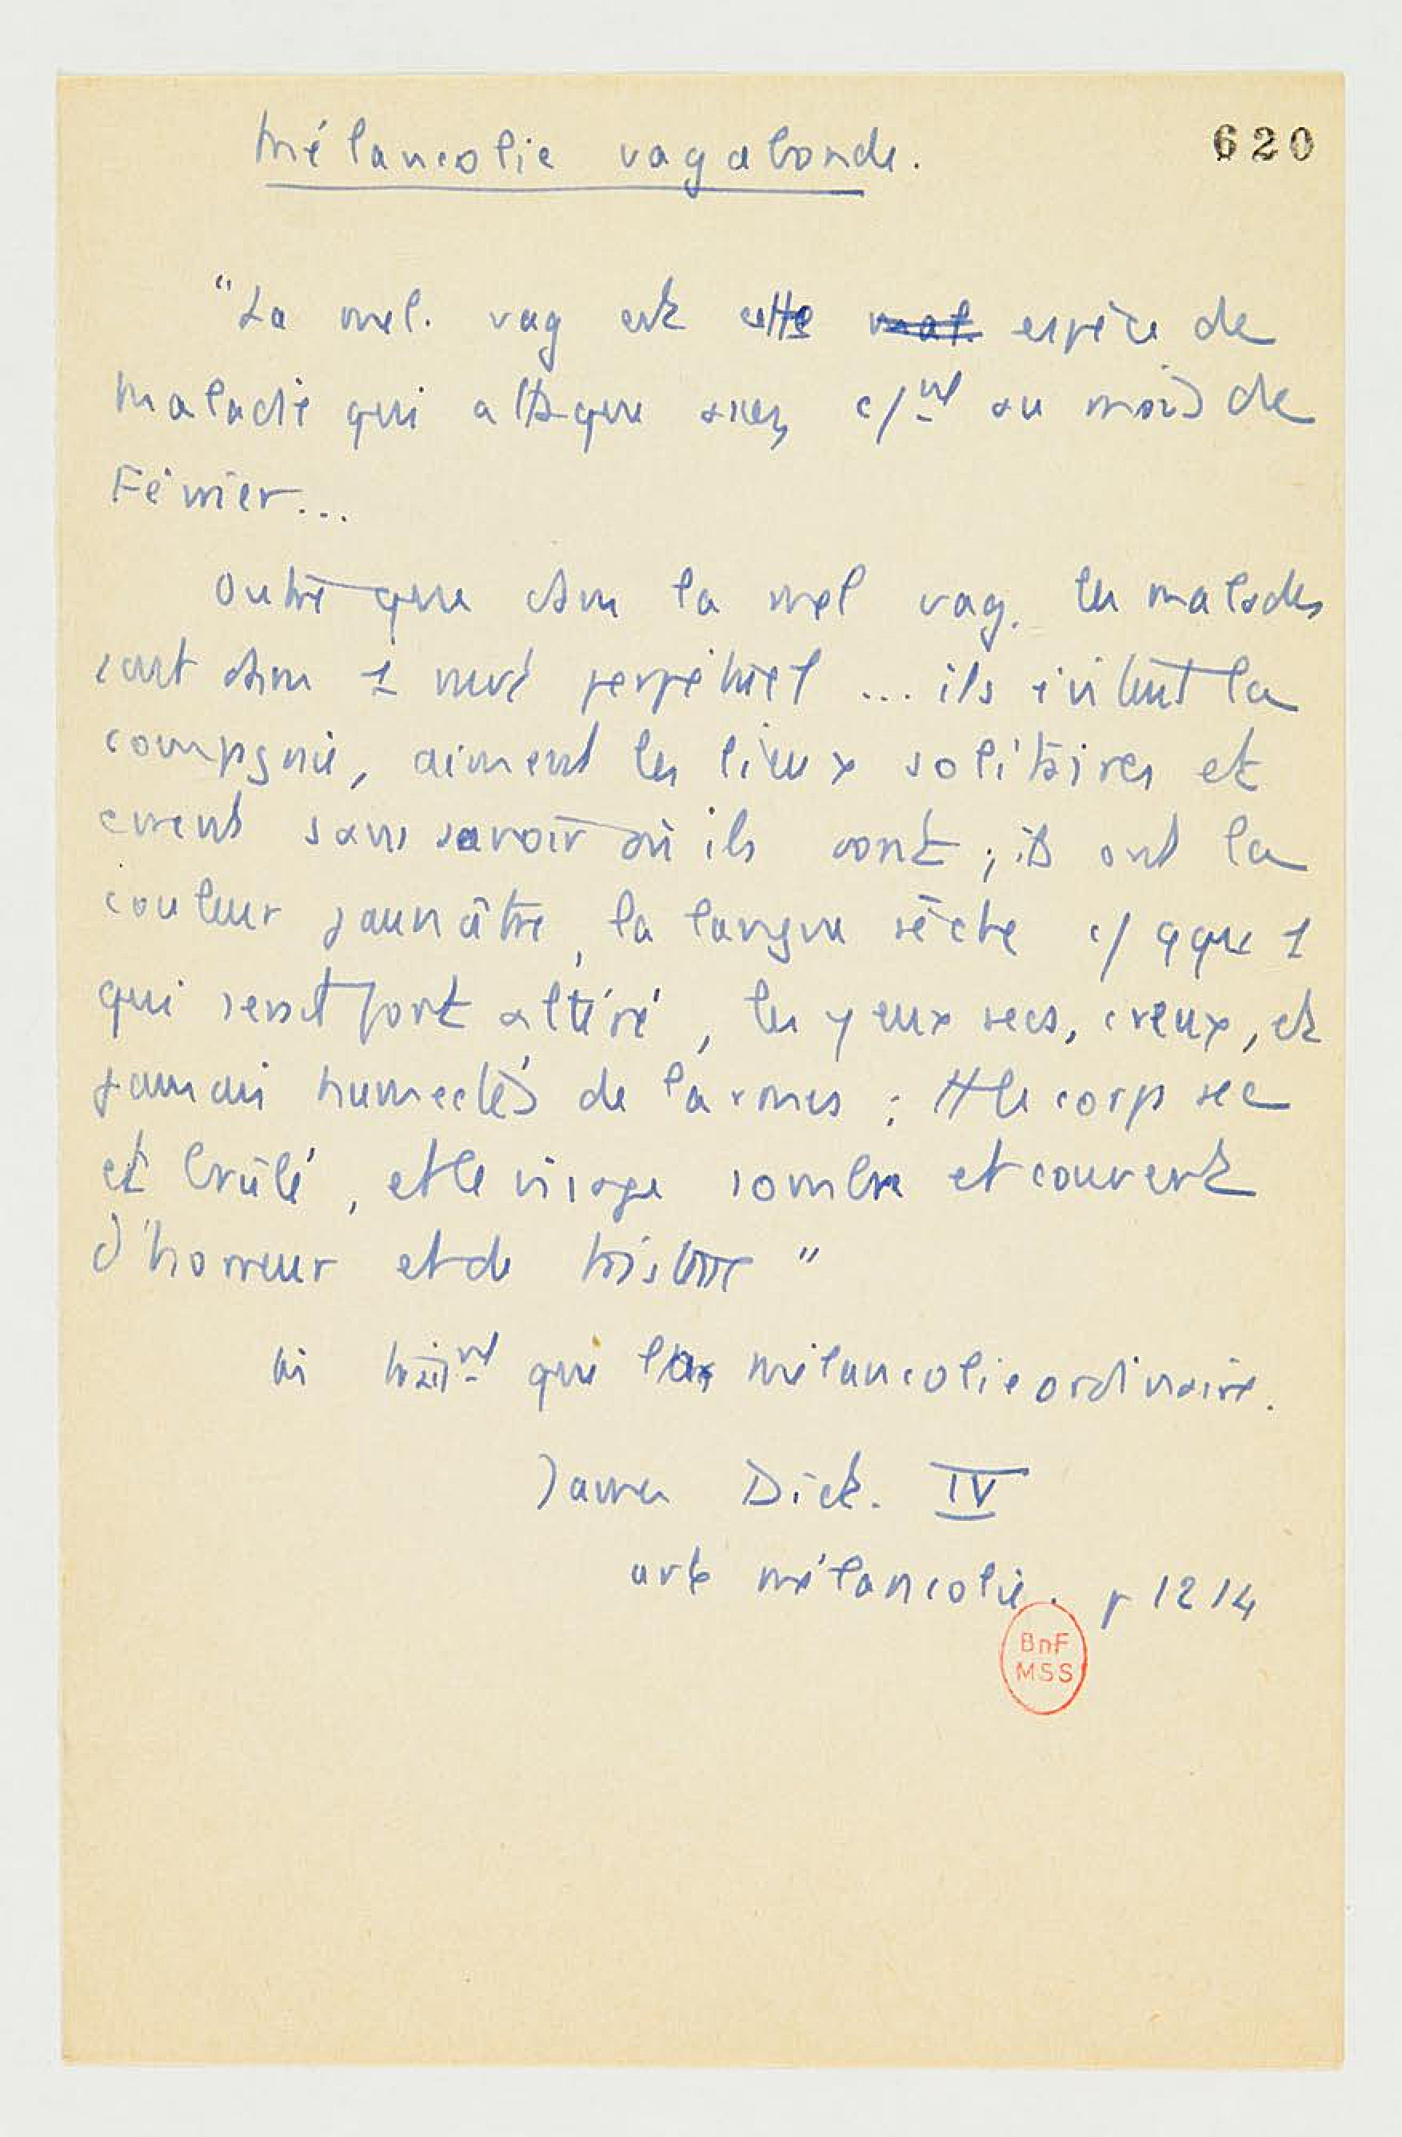 Mélancolie vagabonde.
620
"La mel. vag est cette mal. espèce de
maladie qui attaque assez c/nt au mois de
Février...
Outre que dans la mel vag. les malades
sont dans 1 mvt perpétuel ... ils évitent la
compgnie, aiment les lieux solitaires et
errent sans savoir où ils vont ; ils ont la
couleur jaunâtre, la langue sèche c/ qque 1
qui serait fort altéré, les yeux secs, creux, et
jamais humectés de larmes ; tt le corps sec
et brûlé, et le visage sombre et couvert
d'horreur et de tristesse "
que la mélancolie ordinaire.
James Dict. IV
art mélancolie. p 1214
BnF
MSS